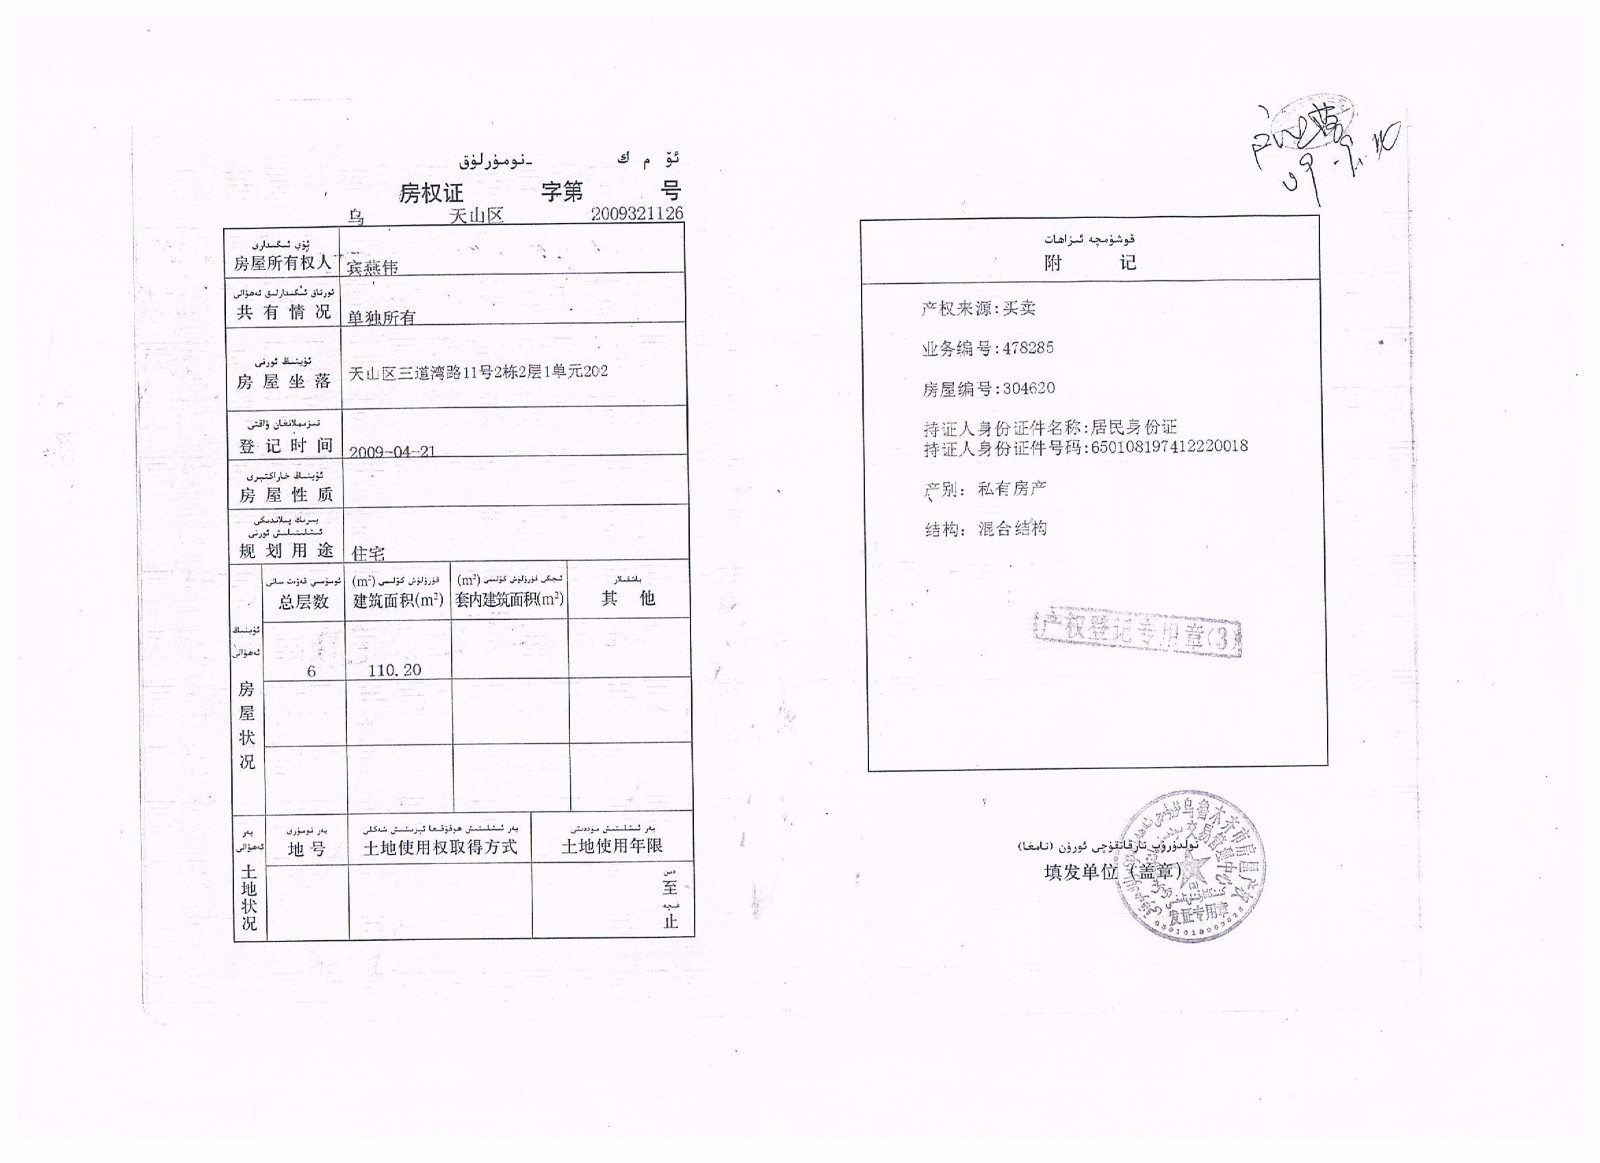 ئۆ م ك ـنومۇرلۇق
房权证 字第 号
乌 天山区 2009321126
ئۆي ئىگىدارى
房屋所有权人 宾燕伟
ئورتاق ئىگىدارلىق ئەھۋالى
共有情况 单独所有
ئۆينىڭ ئورنى
房屋坐落 天山区三道湾路11号2栋2层1单元202
تىزىملانغان ۋاقتى
登记时间 2009-04-21
ئۆينىڭ خاراكتىرى
房屋性质
规划用途 住宅
总层数 建筑面积(m²) 套内建筑面积(m²) 其他
باشقىلار
ئۆينىڭ
ئەھۋالى
房屋状况
6 110.20
يەر
ئەھۋالى
土地状况
يەر نومۇرى
地号 土地使用权取得方式 土地使用年限
至
止
قوشۇمچە ئىزاھات
附 记
产权来源:买卖
业务编号:478285
房屋编号:304620
持证人身份证件名称:居民身份证
持证人身份证件号码:650108197412220018
产别: 私有房产
结构: 混合结构
产权登记专用章(3)
تولدۇرۇپ تارقاتقۇچى ئورۇن (تامغا)
填发单位（盖章）
乌鲁木齐市房屋产权
交易管理中心
发证专用章